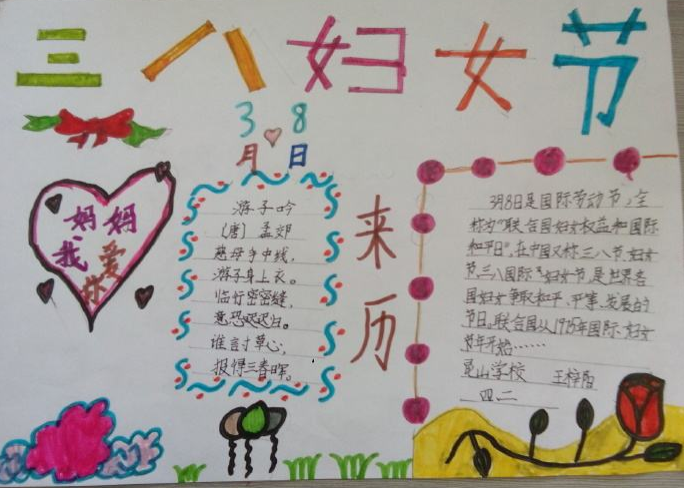 三八妇女节
3月8日
妈妈
我爱你
游子吟
(唐) 孟郊
慈母手中线,
游子身上衣。
临行密密缝,
意恐迟迟归。
谁言寸草心,
报得三春晖。
来历
3月8日是国际劳动节,全
称为“联合国妇女权益和国际
和平日”,在中国又称三八节、妇女
节、三八国际妇女节,是世界各
国妇女争取和平、平等、发展的
节日。联合国从1975年国际妇女
节年开始……
学校 王梓
四二